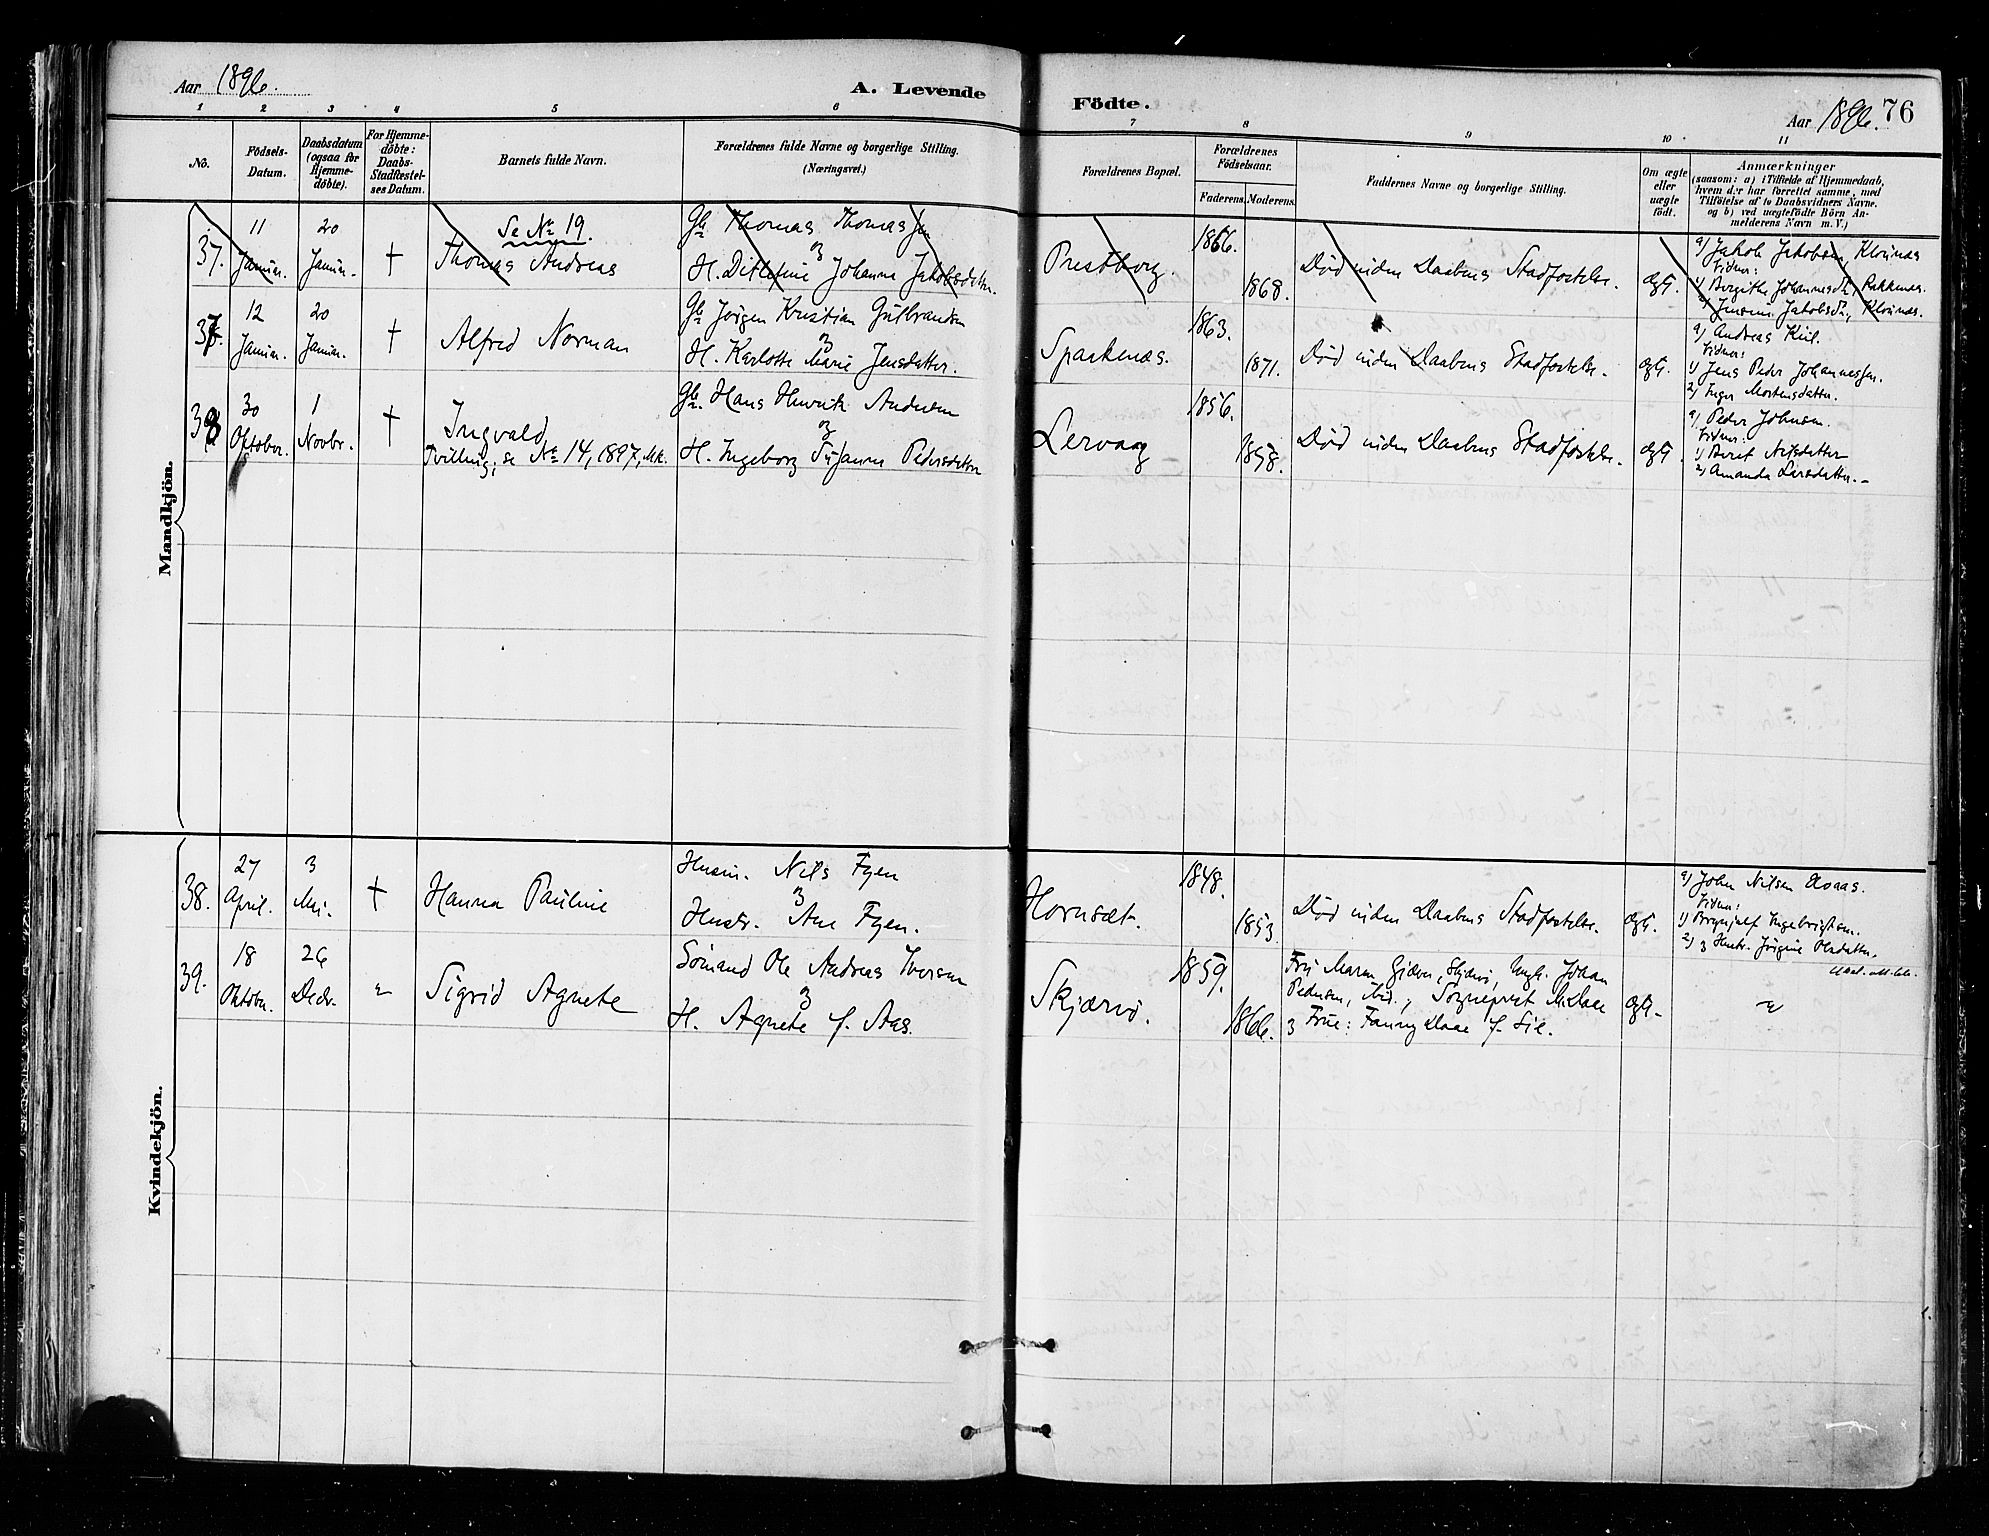 Aar 1896.
A. Levende
Födte.
Aar 1896. 76
1 2 3 4 5 6 7 8 9 10 11
No.
Födsels-
Datum.
Daabsdatum
(ogsaa for
Hjemme-
döbte).
For Hjemme-
döbte:
Daabs-
Stadfæstel-
ses Datum.
Barnets fulde Navn.
Forældrenes fulde Navne og borgerlige Stilling.
(Næringsvei.)
Forældrenes Bopæl.
Forældrenes
Födselsaar.
Faderens. Moderens.
Faddernes Navne og borgerlige Stilling.
Om ægte
eller
uægte
født.
Anmærkninger
(saasom: a) i Tilfælde af Hjemmedaab,
hvem der har forrettet samme, med
Tilföielse af to Daabsvidners Navne.
og b) ved uægtefödte Börn An-
melderens Navn m. V.)
Mandkjön.
37.
11
Januar.
20
Januar.
†
Se No 19.
Thomas Andreas
Gb Thomas Thomassen
og
H. Ditlefine Johanna Jakobsdatter.
Prestberg.
1866.
1868.
Død inden Daabens Stadfæstelse.
ægt.
a) Jakob Jakobsen, Klovnæs
Vidner:
1) Bergithe Johannesdtr,
2) Jensine Jakobsdtr, Klovnæs.
37
12
Januar.
20
Januar.
†
Alfred Norman
Gb Jörgen Kristian Gulbrandsen
og
H. Karlotte Marie Jensdatter.
Spaakenæs.
1863.
1871.
Død inden Daabens Stadfæstelse.
ægt.
a) Andreas Kiil.
Vidner:
1) Jens Peder Johannessen.
2) Inger Mortensdatter.
38
30
Oktober.
1
Novbr.
†
Ingvald
Tvilling; se No 14, 1897, Mk.
Gb. Hans Henrik Andersen
og
H. Ingeborg Susanna Pedersdatter
Lervaag
1856.
1858.
Død inden Daabens Stadfæstelse.
ægt.
a) Peder Johnsen.
Vidner:
1) Berit Nilsdatter
2) Amanda Larsdatter.
Kvindekjön.
38.
27
April.
3
Mai.
†
Hanna Pauline
Husm. Nils Fyen
og
Hustr. Ane Fyen.
Hornsæt.
1848.
1853.
Død inden Daabens Stadfæstelse.
ægt.
a) John Nilsen Hoaas.
Vidner:
1) Brynjulf Ingebrigtsen.
2) og Hustr. Jörgine Olsdatter.
39.
18
Oktober.
26
Decbr.
Sigrid Agnete
Sömand Ole Andreas Iversen
og
H. Agnete f. Aas.
Skjærvö.
1859.
1866.
Fru Maren Giæver, Skjærvö, Ungk. Johan
Pedersen, ibid., Sogneprest M. Daae
og Frue: Fanny Daae f. Lie.
ægt.